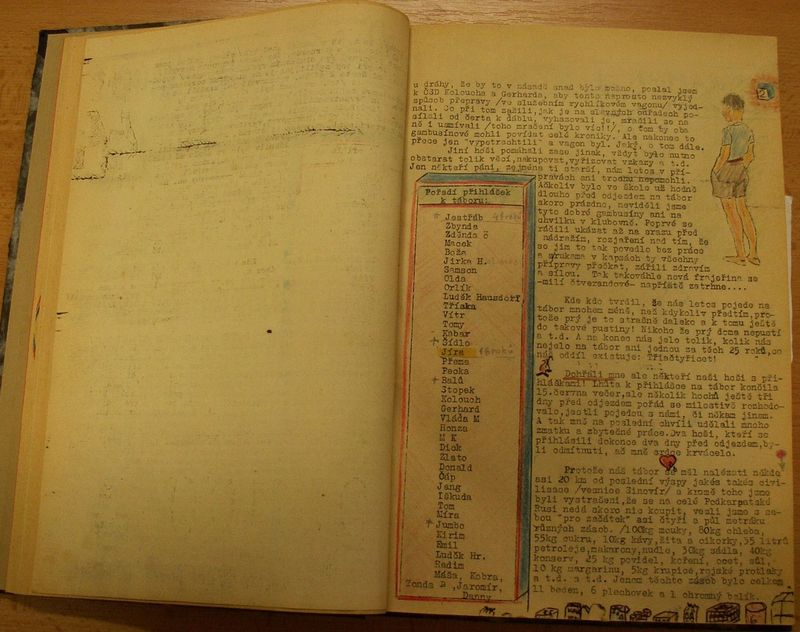 u dráhy, že by to v zásadě snad bylo možno, poslal jsem
k ČSD Koloucha a Gerharda, aby tento naprosto nezvyklý
způsob přepravy /ve služebním rychlíkovém vagonu/ vyjed-
nali. Co při tom zažili, jak je na slavných úřadech po-
sílali od čerta k ďáblu, vyhazovali je, mračili se na
ně i usmívali /toho mračení bylo víc!!/, o tom by oba
gambusínové mohli povídat celé kroniky. Ale nakonec to
přece jen "vypetrachtili" a vagon byl. Jaký, o tom dále.
Jiní hoši pomáhali zase jinak, vždyť bylo nutno
obstarat tolik věcí, nakupovat, vyřizovat vzkazy a t.d.
Jen někteří páni, zejména ti starší, nám letos v pří-
pravách ani trochu nepomohli.
Ačkoliv bylo ve škole už hodně
dlouho před odjezdem na tábor
skoro prázdno, neviděli jsme
tyto dobré gambusíny ani na
chvilku v klubovně. Poprvé se
ráčili ukázat až na srazu před
nádražím, rozjaření nad tím, že
se jim to tak povedlo bez práce
a s rukama v kapsách ty všechny
přípravy přečkat, zářili zdravím
a silou. Tak takováhle nová frajeřina se
-milí čtverandové- napříště zatrhne....
Pořadí přihlášek
k táboru:
Jestřáb 4 roků
Zbynda
Zdenda Č
Macek
Boža
Jirka H.
Samson
Olda
Orlík
Luděk Hausdorf,
Tříska
Vítr
Tomy
Kabar
+ Šídlo
Jíra 16 roků
Přema
Pecka
+ Balů
Stopek
Kolouch
Gerhard
Vláďa M
Honza
M K
Dick
Zlato
Donald
Čáp
Jang
Iškuda
Tom
Míra
+ Jumbo
Kirim
Emil
Luděk Hr.
Radim
Máša, Kobra,
Tonda B, Jaromír,
Danny
2
Kde kdo tvrdil, že nás letos pojede na
tábor mnohem méně, než kdykoliv předtím, pro-
tože prý je to strašně daleko a k tomu ještě
do takové pustiny! Nikoho že prý doma nepustí
a t.d. A na konec nás jelo tolik, kolik nás
nejelo na tábor ani jednou za těch 25 roků, co
náš oddíl existuje: Třiačtyřicet!
Dohřáli mne ale někteří naši hoši s při-
hláškami! Lhůta k přihlášce na tábor končila
15.června večer, ale několik hochů ještě tři
dny před odjezdem pořád se milostivě rozhodo-
valo, jestli pojedou s námi, či někam jinam.
A tak mně na poslední chvíli udělali mnoho
zmatku a zbytečné práce. Dva hoši, kteří se
přihlásili dokonce dva dny před odjezdem, by-
li odmítnuti, ač mně srdce krvácelo.
Protože náš tábor se měl nalézati někde
asi 20 km od poslední výspy jakés takés civi-
lisace /vesnice Sinovír/ a kromě toho jsme
byli vystrašeni, že se na celé Podkarpatské
Rusi nedá skoro nic koupit, vezli jsme s se-
bou "pro začátek" asi čtyři a půl metráku
různých zásob. /100kg mouky, 80kg chleba,
55kg cukru, 10kg kávy, žita a cikorky, 35 litrů
petroleje, makarony, nudle, 30kg sádla, 40kg
konserv, 25 kg povidel, koření, ocet, sůl,
10 kg margarinu, 5kg krupice, rajské protlaky
a t.d. a t.d. Jenom těchto zásob bylo celkem
11 beden, 6 plechovek a 1 ohromný balík.